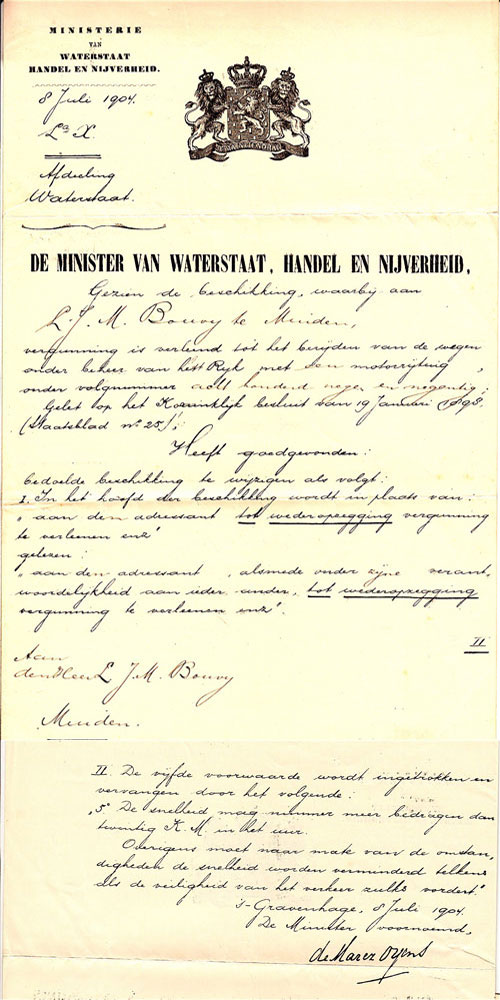 MINISTERIE
VAN
WATERSTAAT
HANDEL EN NIJVERHEID.
8 Juli 1904.
La X.
Afdeeling
Waterstaat.
JE MAINTIENDRAI
DE MINISTER VAN WATERSTAAT, HANDEL EN NIJVERHEID,
Gezien de beschikking, waarbij aan
L. J. M. Bouvy te Muiden,
vergunning is verleend tot het berijden van de wegen
onder beheer van het Rijk met een motorrijtuig,
onder volgnummer acht honderd negen en negentig;
Gelet op het Koninklijk besluit van 19 Januari 1898.
(Staatsblad no 25);
Heeft goedgevonden:
bedoelde beschikking te wijzigen als volgt:
I. In het hoofd der beschikking wordt in plaats van:
„ aan den adressant tot wederopzegging vergunning
te verleenen enz"
gelezen:
„ aan den adressant, alsmede onder zijne verant-
woordelijkheid aan ieder ander, tot wederopzegging
vergunning te verleenen enz".
II
Aan
den Heer L. J. M. Bouvy
Muiden.
II. De vijfde voorwaarde wordt ingetrokken en
vervangen door het volgende:
„5o De snelheid mag nimmer meer bedragen dan
twintig K.M. in het uur.
Overigens moet naar mate van de omstan-
digheden de snelheid worden verminderd telkens
als de veiligheid van het verkeer zulks vordert."
's-Gravenhage, 8 Juli 1904.
De Minister voornoemd,
de Marez Oyens